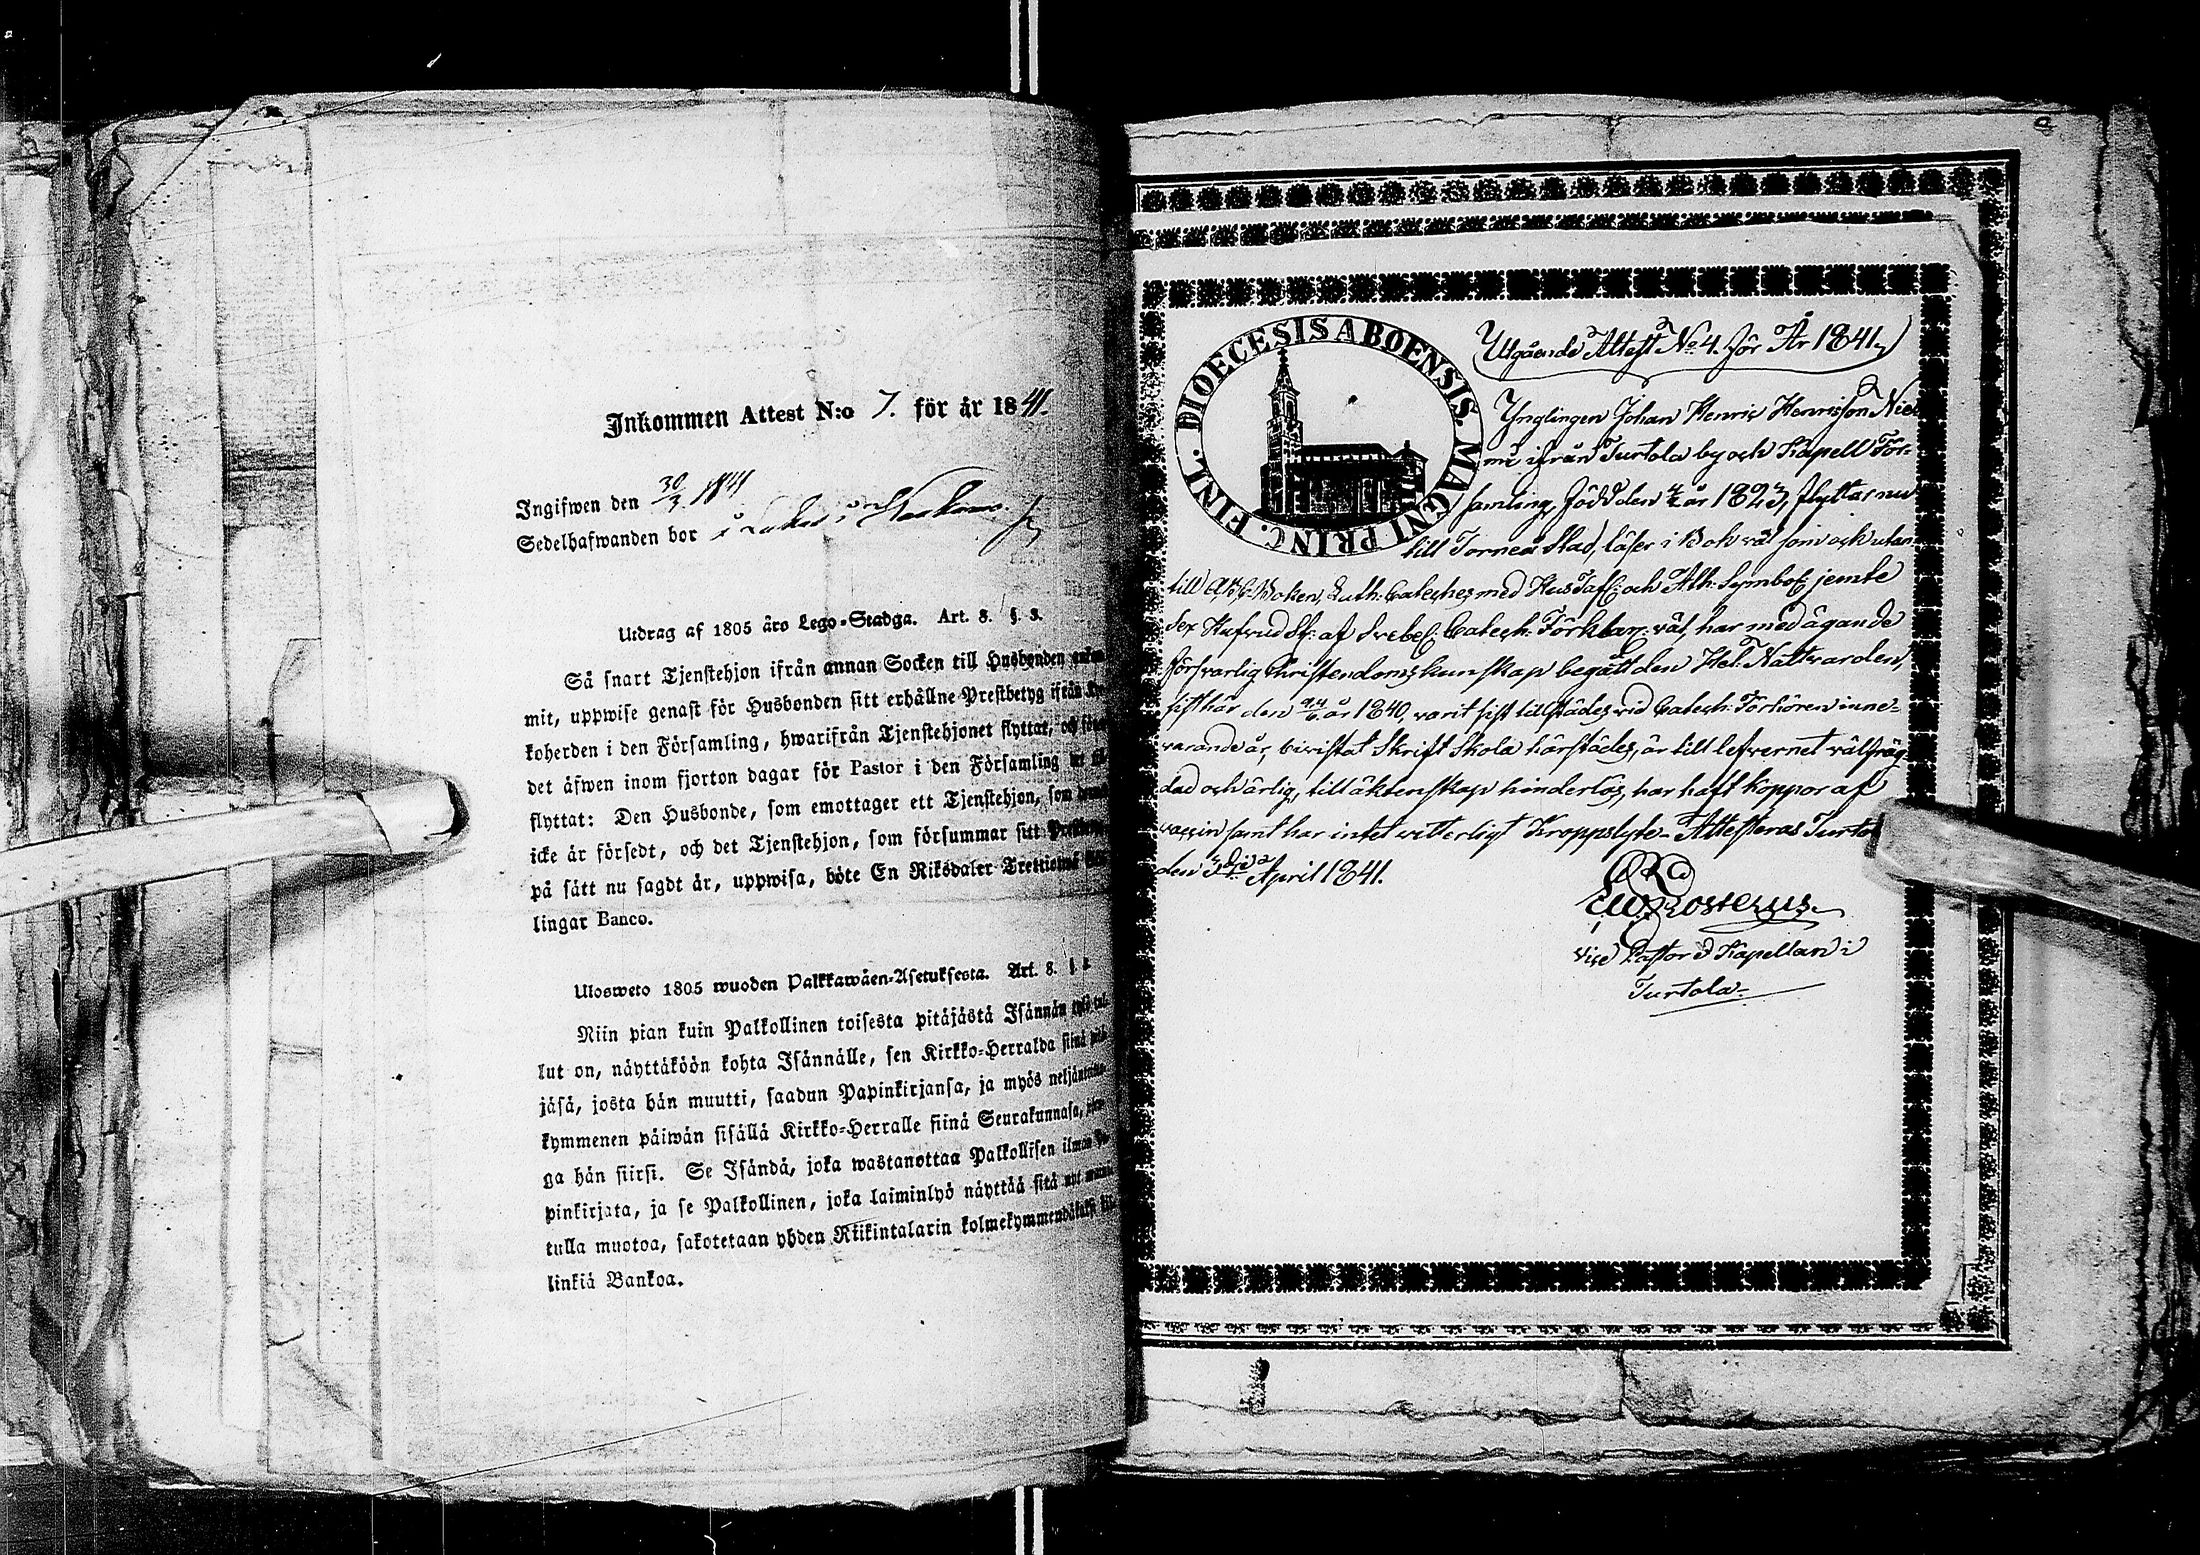 Inkommen Attest N:o 7. för år 1841.
Ingifwen den 30/3 1841
Sedelhafwanden bor i
Utdrag af 1805 års Lego-Stadga. Art. 8. §. 3.
Så snart Tjenstehjon ifrån annan Socken till Husbonden
mit, uppwise genast för Husbonden sitt erhållne Prestbetyg ifrån
koherden i den Församling, hwarifrån Tjenstehjonet flyttat, och
det äfwen inom fjorton dagar för Pastor i den Församling
flyttat: Den Husbonde, som emottager ett Tjenstehjon, som
icke är försedt, och det Tjenstehjon, som försummar sitt
på sätt nu sagdt är, uppwisa, böte En Riksdaler Trettio
lingar Banco.
Ulosweto 1805 wuoden Palkkawäen-Asetuksesta. Art. 8. §.
Niin pian kuin Palkollinen toisesta pitäjästä Isännän
lut on, näyttäköön kohta Isännälle, sen Kirkko-Herralda siinä
jäsä, josta hän muutti, saadun Papinkirjansa, ja myös
kymmenen päiwän sisällä Kirkko-Herralle siinä Seurakunnasa,
ga hän siirsi. Se Isändä, joka wastanottaa Palkollisen ilman
pinkirjata, ja se Palkollinen, joka laiminlyö näyttää sitä
tulla muotoa, sakotetaan yhden Riikintalarin
linkiä Bankoa.
DIOECESIS ABOENSIS. MAGNI PRINC. FINL.
Utgående Attest No 4. för År 1841
Ynglingen Johan Henric Henricsson Nie
mi ifrån Turtola by och Kapell För-
samling, född den år 1823, flyttar nu
till Torneå Stad, läser i Bok väl som ock utan
till A,B,C-Boken, Luth: Cateches med HusTafl: och Ath: Symbol: jemte
sex Hufvud St: af Svebel: Catech: Förklar: väl, har med ägande
försvarlig Christendomskunskap begått den Hel: Nattvarden,
sist här den år 1840, varit sist tillstädes vid Catech: Förhören inne-
varande år, bivistat Skrift Skola härstädes, är till lefvernet välfräg
dad och ärlig, till äktenskap hinderlös, har haft koppor af
vaccin samt har intet vitterligt Kroppslyte. Attesteras Turto
den April 1841.
vice Pastor & Kapellan i
Turtola.